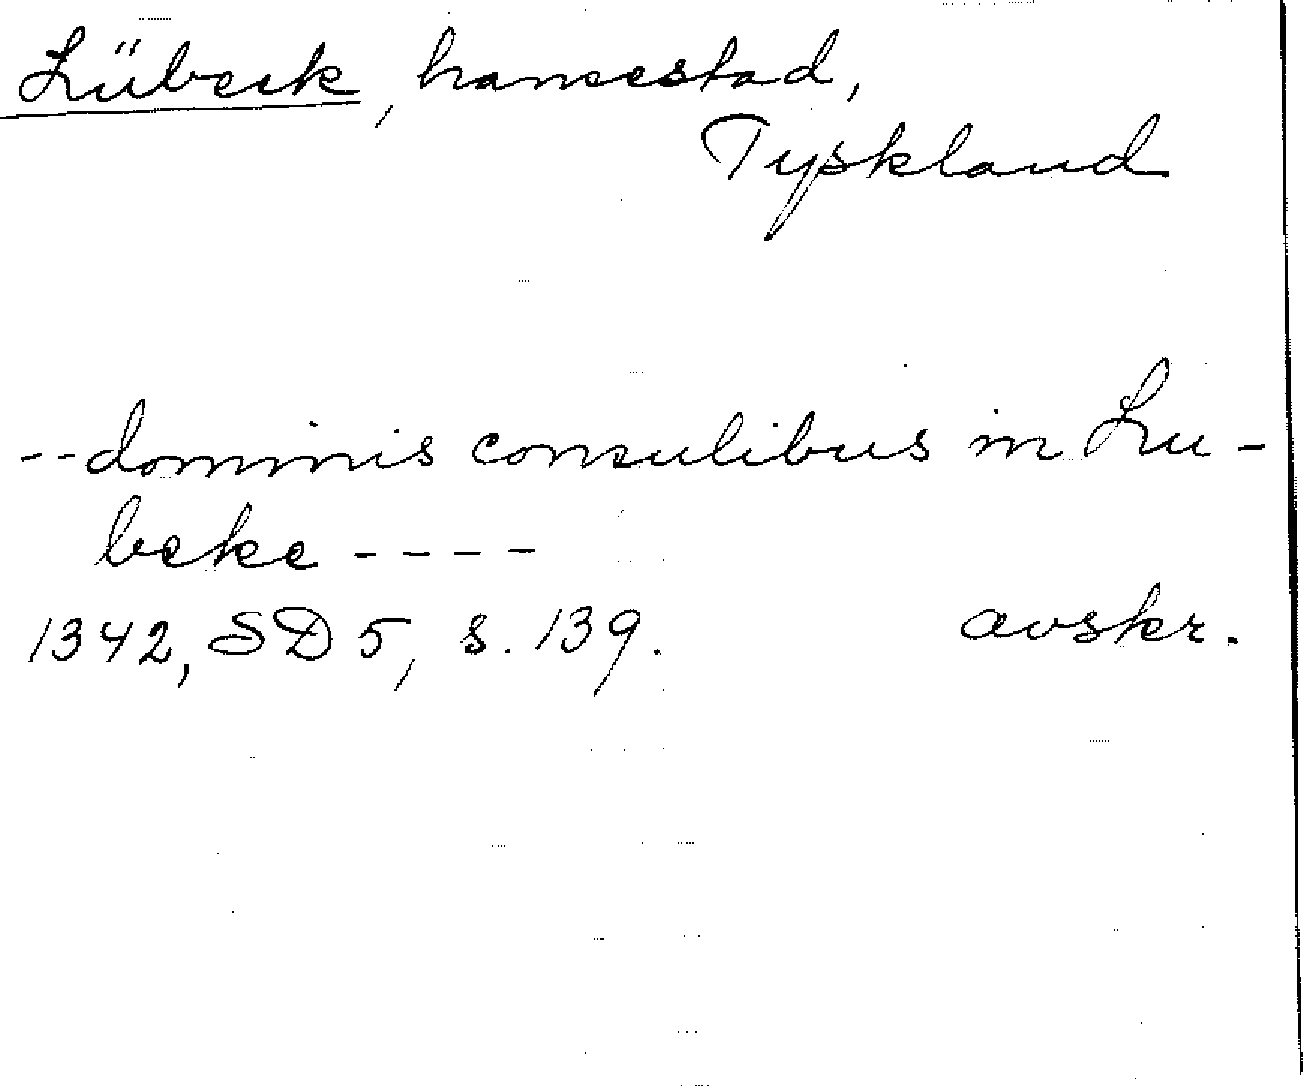 Lübeck, hansestad,
Tyskland
--dominis consulibus in Lu-
beke ----
1342, SD 5, s. 139. avskr.